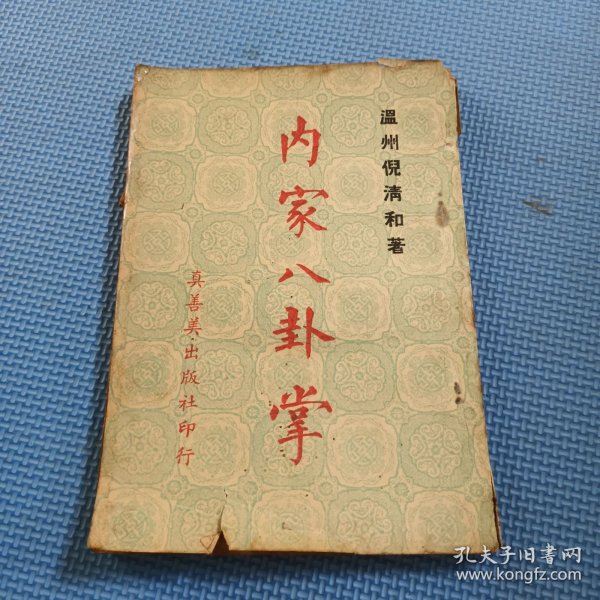 溫州倪清和著
内家八卦掌
真善美出版社印行
孔夫子旧書网
www.kongfz.com